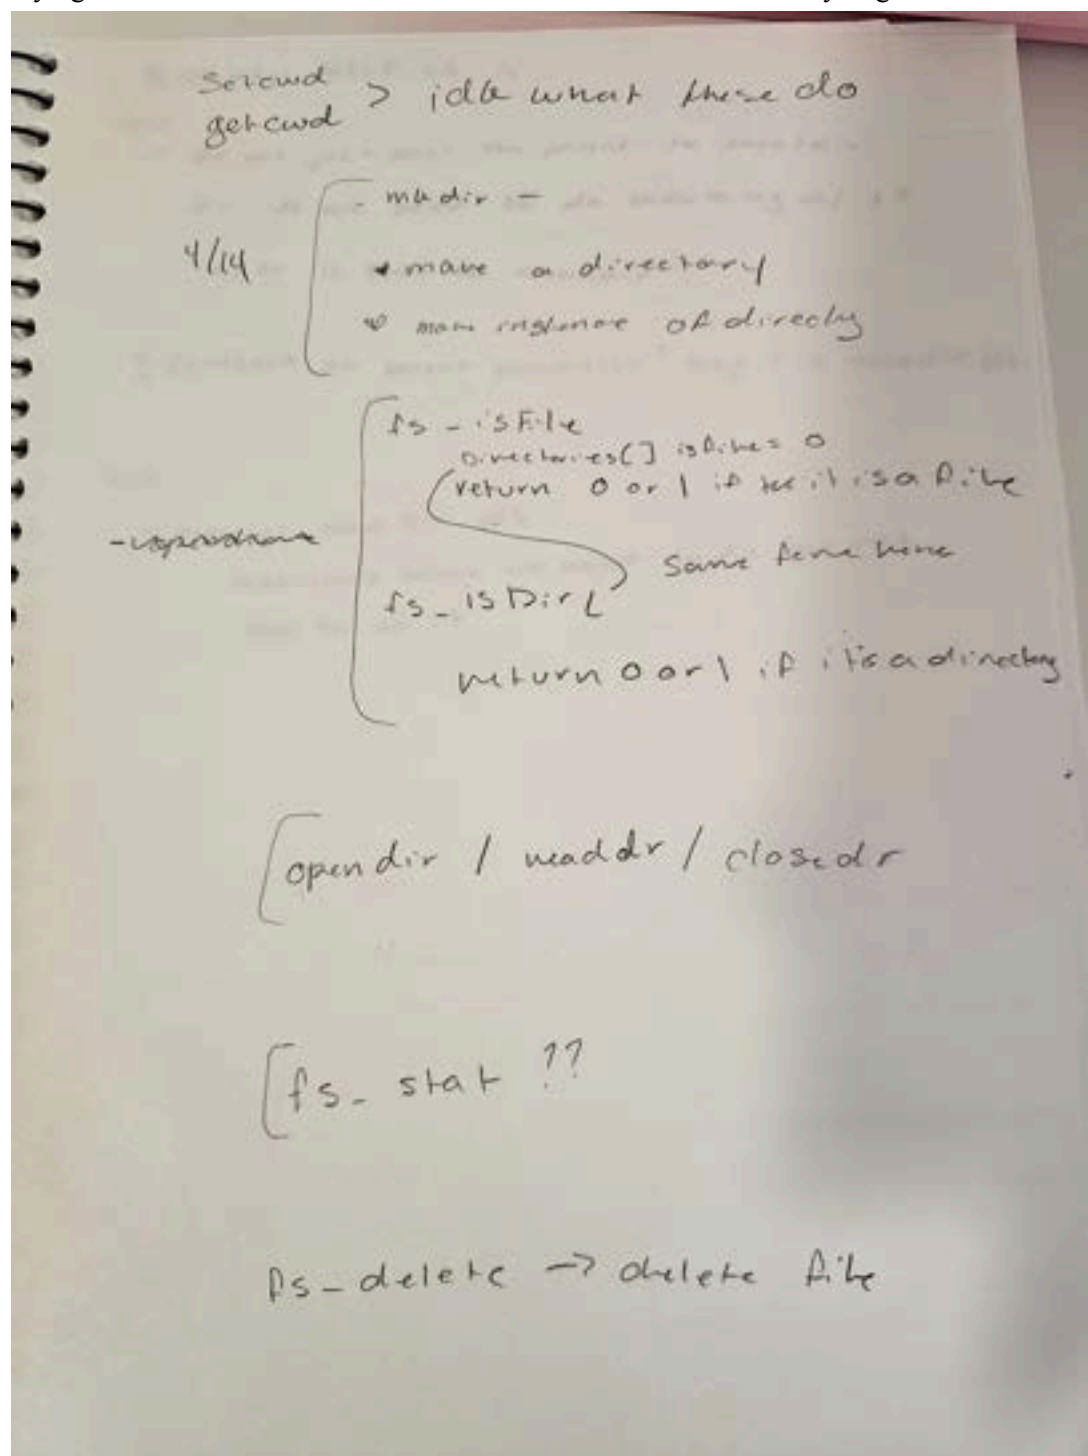 setcwd
getcwd > idk what these do
mkdir -
4/14
• make a directory
• make instance of directory
fs_isFile
Directories[] isFile = 0
return 0 or 1 if it is a file
same here
fs_isDir
return 0 or 1 if it's a directory
opendir / readdr / closedr
fs_stat ??
fs_delete → delete file